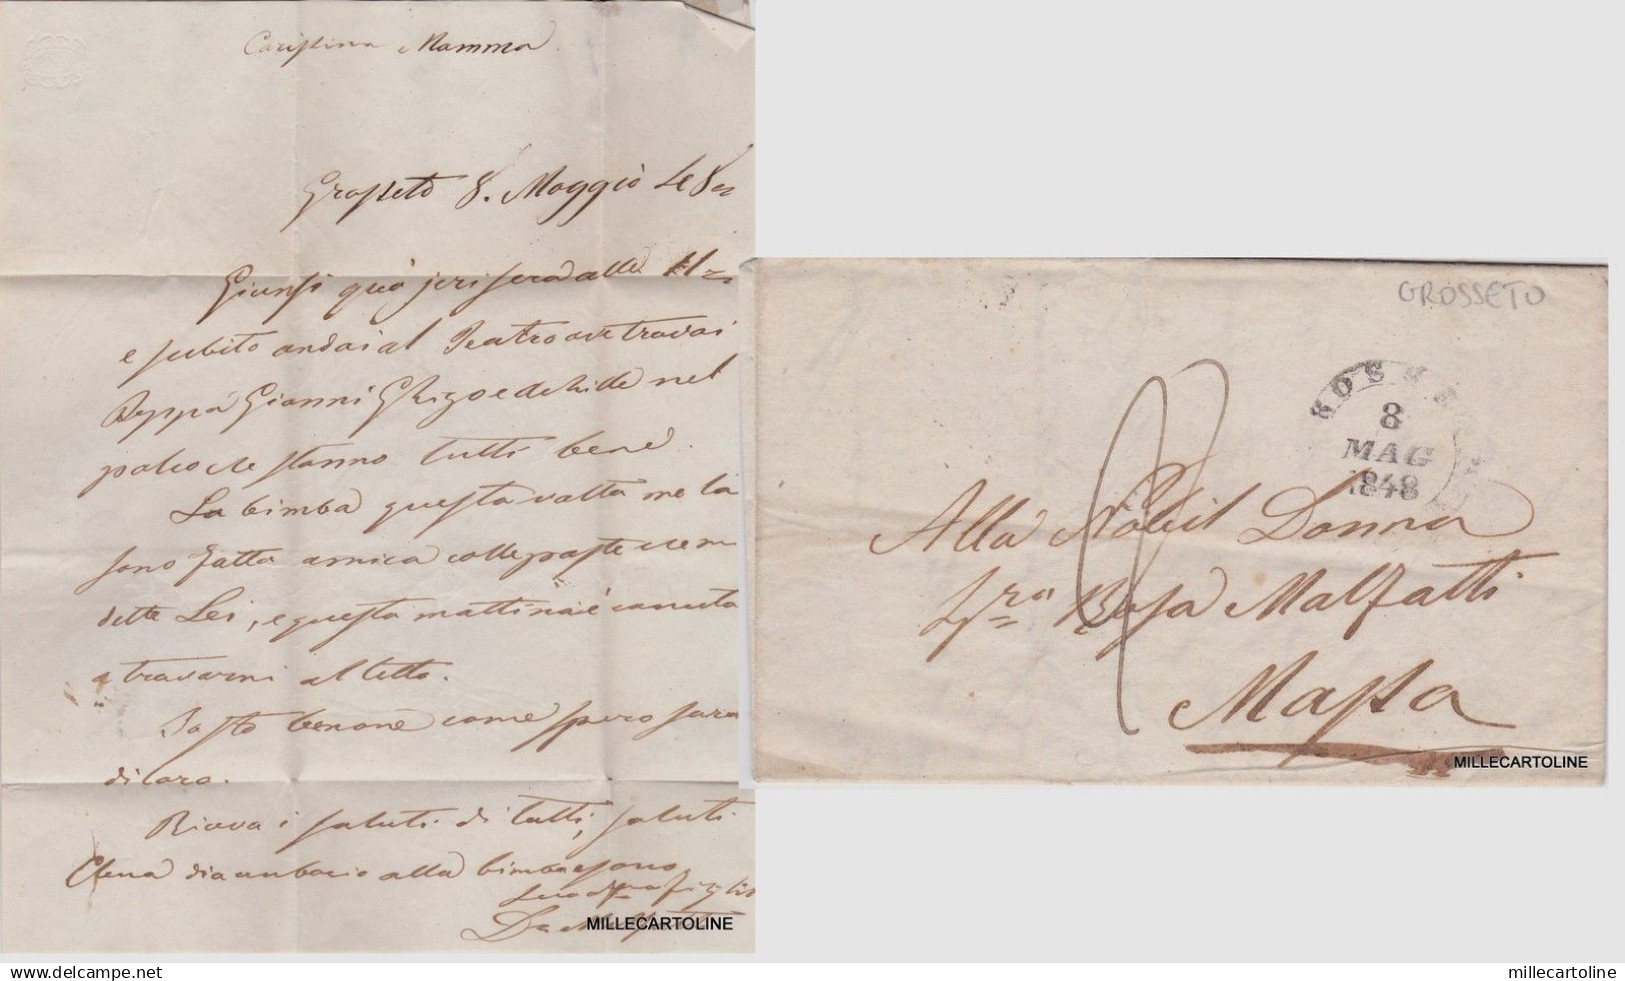 Carissima Mamma
Grosseto 8. Maggio 48
Giunsi quà jeri sera alle 11
e subito andai al Teatro ove trovai
Beppa Gianni Ghigo e nel
palco che stanno tutti bene.
La bimba questa volta me la
sono fatta amica colle paste che mi
dette Lei, e questa mattina è venuta
a trovarmi al letto.
Tosto benone come spero sarà
di loro.
Riceva i saluti di tutti, saluti
Elena dia un bacio alla bimba e sono
Suo figlio
MILLECARTOLINE
GROSSETO
8
MAG
1848
Alla Nobil Donna
Sig.ra Rosa Malfatti
Massa
MILLECARTOLINE
https://www.delcampe.net/
millecartoline